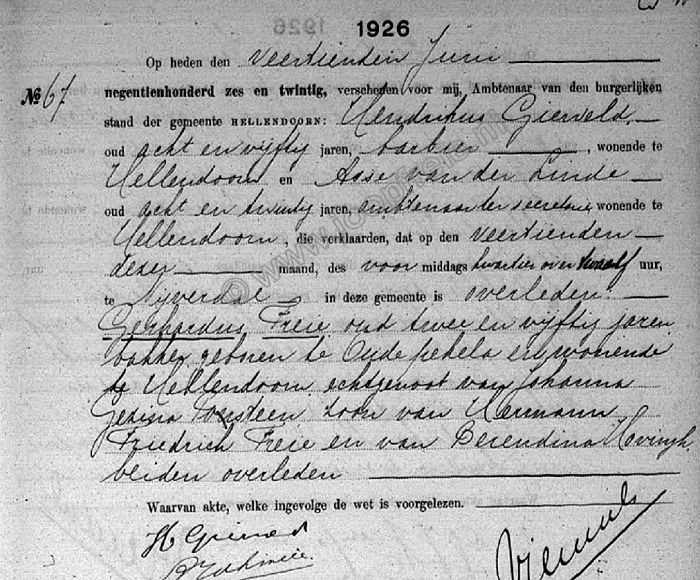 1926
Op heden den veertienden Juni
No 67 negentienhonderd zes en twintig, verscheen voor mij, Ambtenaar van den burgerlijken
stand der gemeente HELLENDOORN: Hendrikus Gierveld,
oud acht en vijftig jaren, barbier, wonende te
Hellendoorn en van der Linde
oud acht en twintig jaren, ambtenaar ter secretarie wonende te
Hellendoorn, die verklaarden, dat op den veertienden
dezer maand, des voor middags kwartier over twaalf uur,
te Nijverdal in deze gemeente is overleden:
Gerhardus Freie oud twee en vijftig jaren
bakker, geboren te Oude pekela en wonende
te Hellendoorn, echtgenoot van Johanna
Gezina zoon van Hermann
Friedrich Freie en van Berendina Hovingh,
beiden overleden
Waarvan akte, welke ingevolge de wet is voorgelezen.